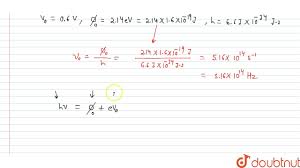 V₀ = 0.6 V, ϕ₀ = 2.14 eV = 2.14 × 1.6 × 10⁻¹⁹ J, h = 6.63 × 10⁻³⁴ J-s
ν₀ = ϕ₀/h = 2.14 × 1.6 × 10⁻¹⁹ J / 6.63 × 10⁻³⁴ J-s = 5.16 × 10¹⁴ s⁻¹
= 5.16 × 10¹⁴ Hz
hν = ϕ₀ + eV₀
doubtnut